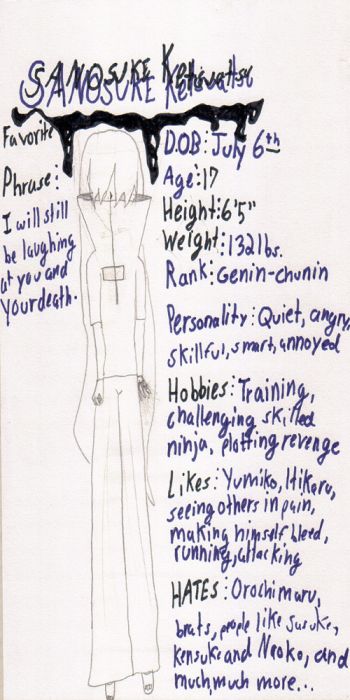 SANOSUKE
Favorite
Phrase:
I will still
be laughing
at you and
Your death.
D.O.B: July 6th
Age: 17
Height: 6'5"
Weight: 132lbs.
Rank: Genin-chunin
Personality: Quiet, angry,
skillful, smart, annoyed
Hobbies: Training,
challenging skilled
ninja, plotting revenge
Likes: Yumiko, Hikaru,
seeing others in pain,
making himself bleed,
running, attacking
HATES: Orochimaru,
brats, people like Sasuke,
Kensuke and Neoko, and
much, much more...